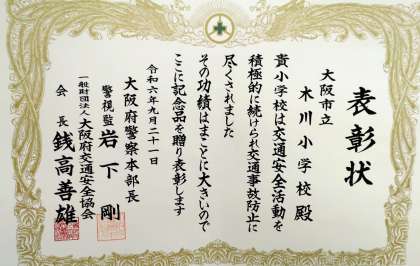 表彰状
大阪市立
木川小学校殿
貴小学校は交通安全活動を
積極的に続けられ交通事故防止に
尽くされました
その功績はまことに大きいので
ここに記念品を贈り表彰します
令和六年九月二十一日
大阪府警察本部長
警視監 岩下剛
一般財団法人大阪府交通安全協会
会長 銭高善雄